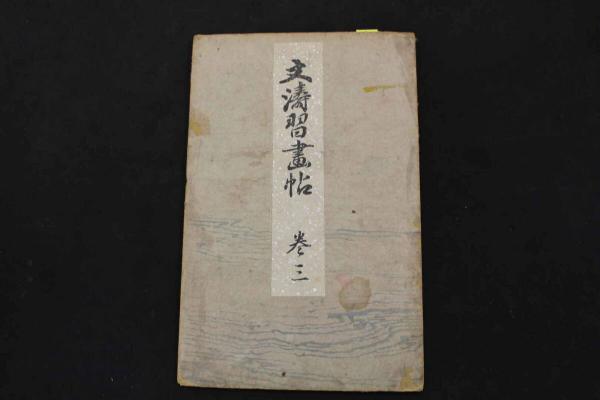 文濤習畫帖 巻三